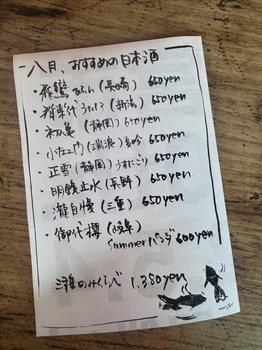 八月、おすすめの日本酒
・(長崎) 650yen
・(新潟) 650yen
・初亀 (静岡) 650yen
・小左エ門 650yen
・正雪 (静岡) うすにごり 650yen
・明鏡止水 (長野) 650yen
・瀧自慢 (三重) 650yen
・御代櫻 (岐阜)
Summer 600yen
三種のみくらべ 1,380yen